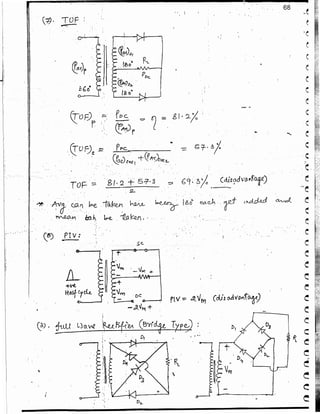 68
(7). TUF :
(Pac)p
360°
(Pac)s1
180°
RL
PDC
(Pac)s2
180°
(TUF)p = PDC / (Pac)p = η = 81.2 %
(TUF)s = PDC / (Pac)sec1 + (Pac)sec2 = 57.3 %
TUF = 81.2 + 57.3 / 2 = 69.3 % (disadvantage)
* Avg can be taken here 180° each get added and
mean both be taken.
(8) PIV :
+ve
Half cycle
SC
+
Vm
-
- Vm +
+
Vm
-
OC
- 2Vm +
PIV = 2Vm (disadvantage)
(2). Full Wave Rectifier (Bridge Type) :
D1
D2
D3
D4
RL
+
Vm
-
D1
D2
D3
D4
RL